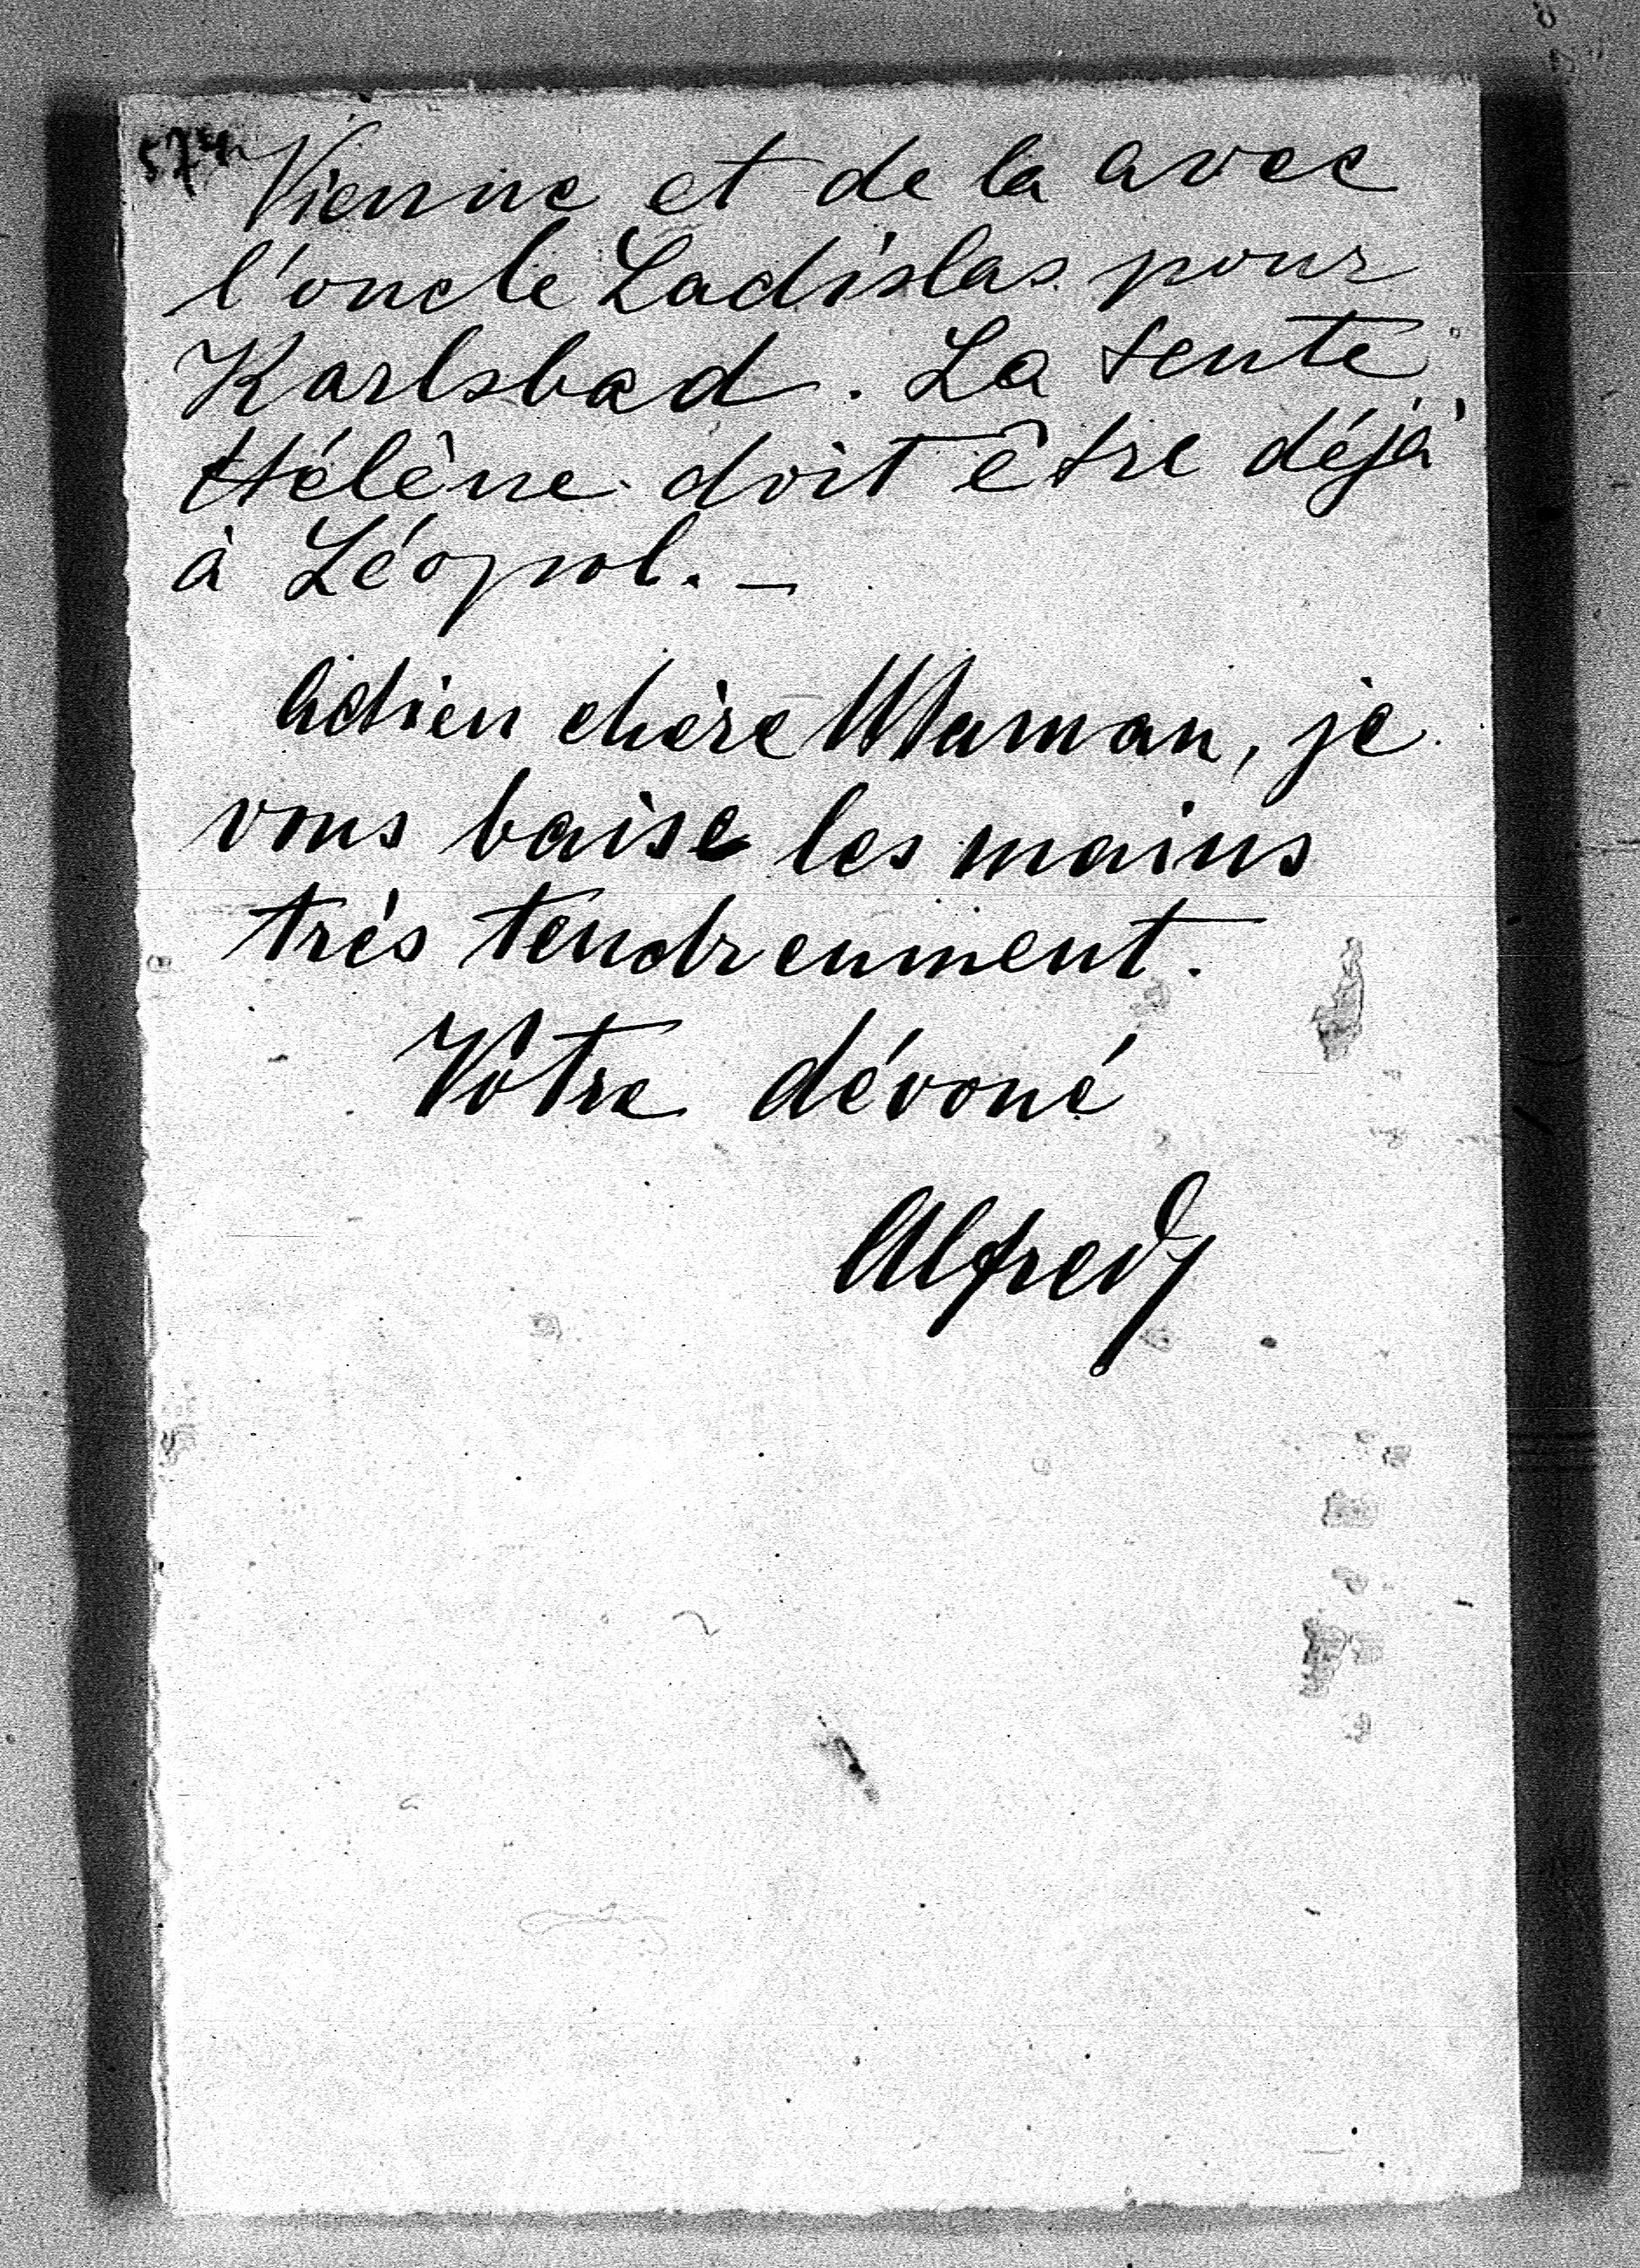 Vienne et de la avec
l'oncle Ladislas pour
Karlsbad. La tente
Hélène doit être déjà
à Léopol. —
Adieu chère Maman, je
vous baise les mains
très tendrenment.
Vôtre dévoué
Alfred